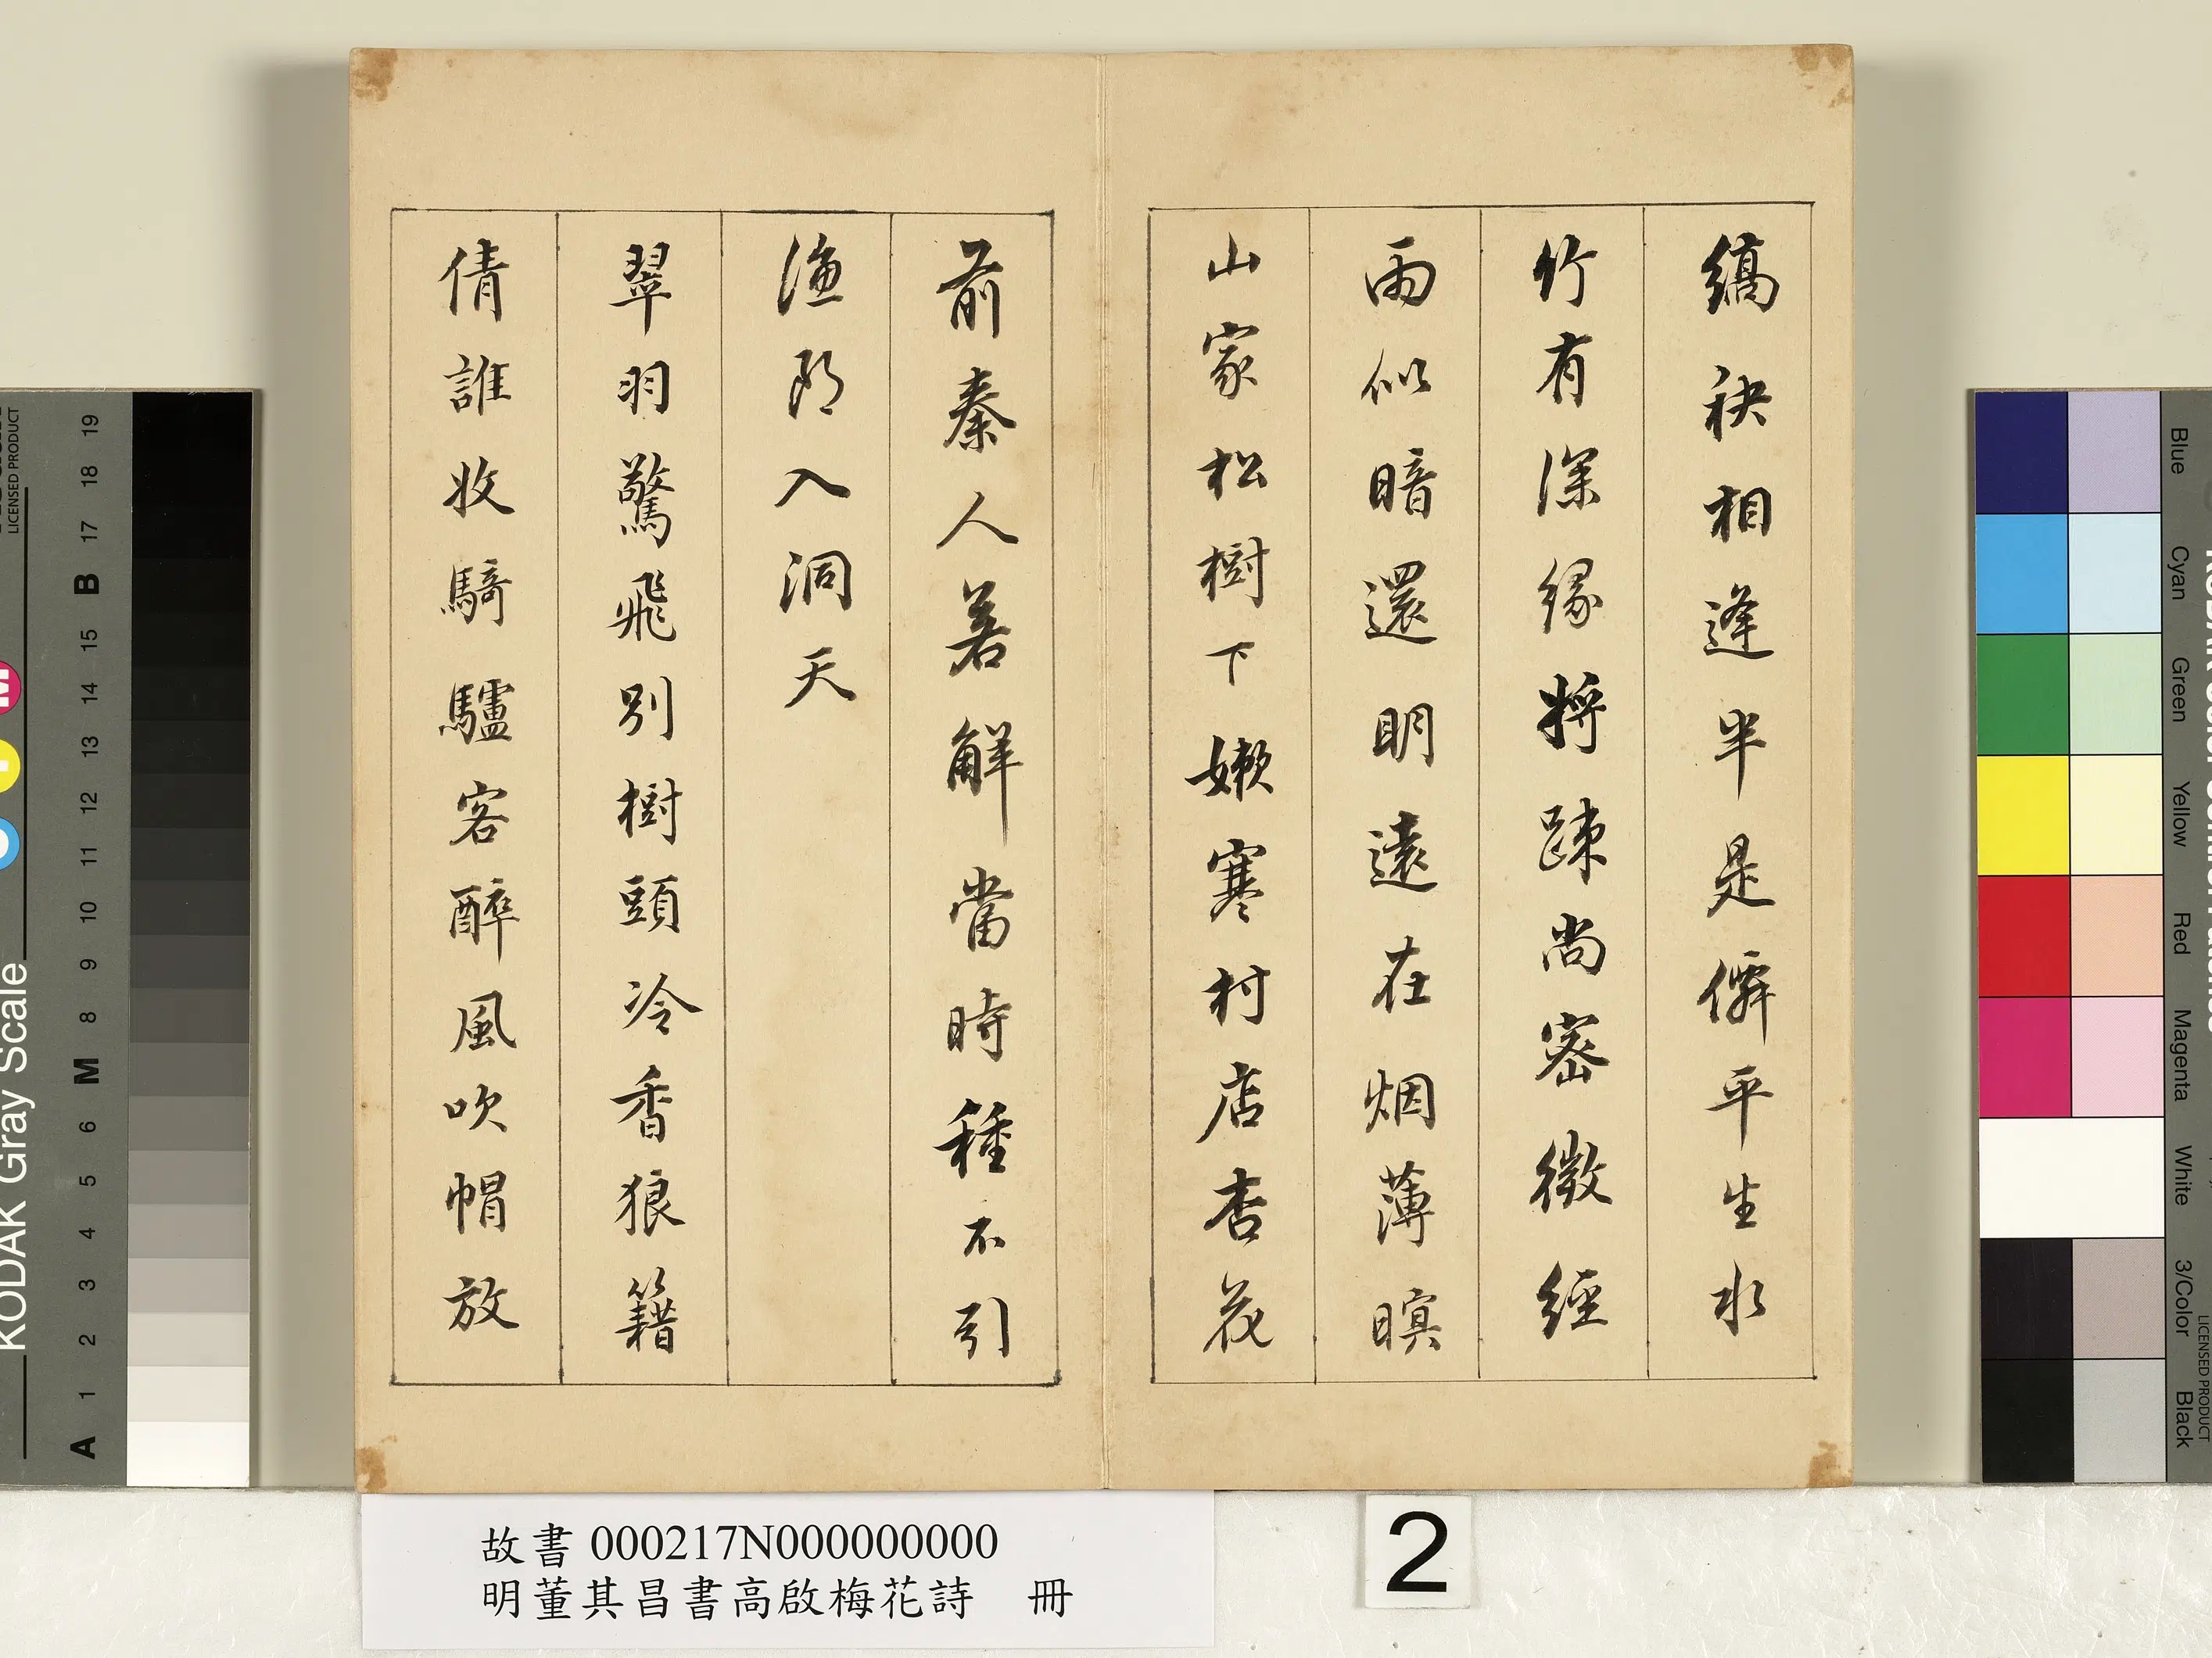 縞袂相逢半是僊平生水
竹有深緣將踈尚密微經
雨似暗還明遠在烟薄暝
山家松樹下嫩寒村店杏花
前秦人若解當時種不引
漁郎入洞天
翠羽驚飛別樹頭冷香狼籍
倩誰收騎驢客醉風吹帽放
故書 000217N000000000
明董其昌書高啟梅花詩 冊
2
KODAK Gray Scale
LICENSED PRODUCT
A 1 2 3 4 5 6 M 8 9 10 11 12 13 14 15 B 17 18 19
Blue
Cyan
Green
Yellow
Red
Magenta
White
3/Color
Black
LICENSED PRODUCT